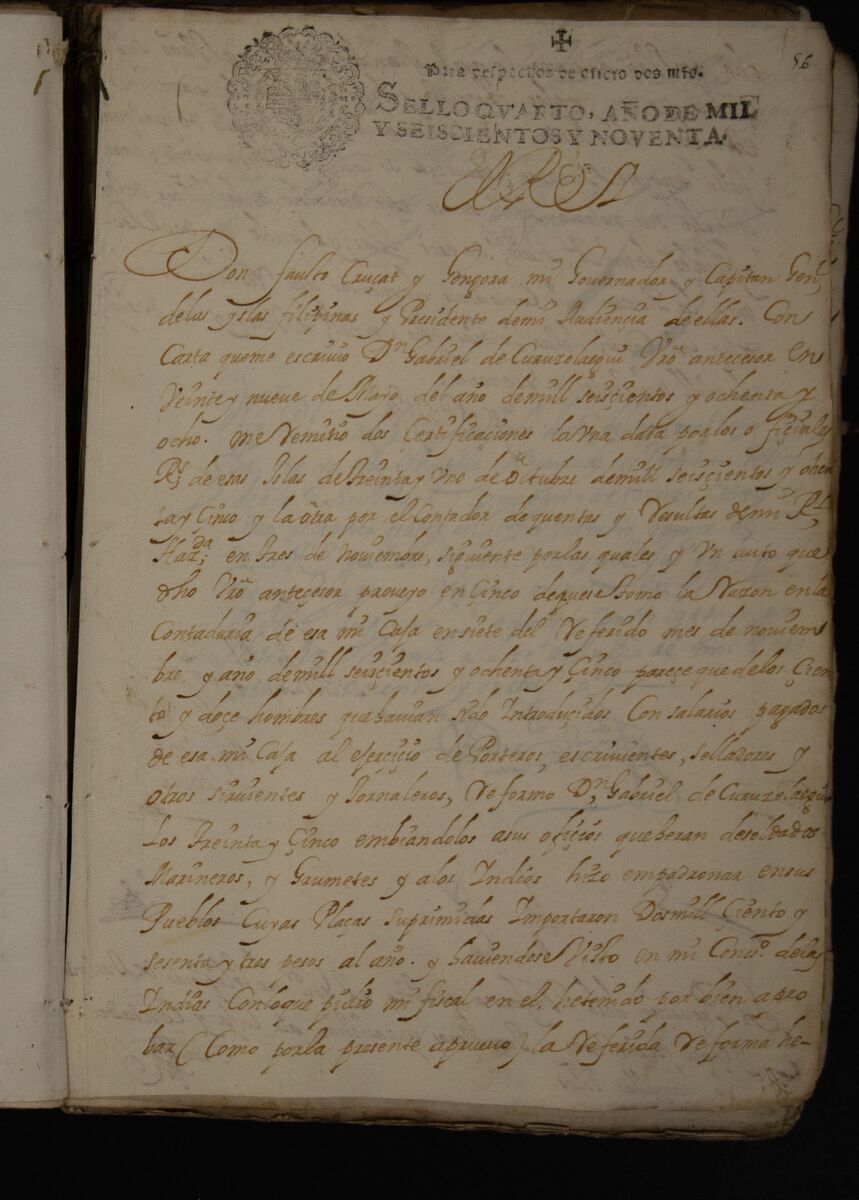 56
Para despachos de oficio dos mrs.
SELLO QVARTO, AÑO DE MIL
Y SEISCIENTOS Y NOVENTA.
El Rey
Don fausto Cruçat y Gongora mi Governador y Capitan Genl
delas yslas filipinas y Presidente demi Audiençia de ellas. Con
Carta queme escrivio Dn Gabriel de Curuzelaegui Vro anteçesor en
Veinte y nueve de Mayo del año demill seisçientos y ochenta y
ocho. me Remitio dos Çertificaçiones la Una dada porlos ofiçiales
Rs de esas Islas de treinta y Uno de octubre demill seisçientos y ochen
ta y Çinco y la otra por el Contador de quentas y Resultas demi Rl
Hazda en tres de Noviembre, siguiente porlas quales y Un auto que
dho Vro anteçesor proveyo en Çinco deque se tomo la Razon en la
Contaduria de esa mi Caja en siete del Referido mes de noviem
bre y año demill seisçientos y ochenta y Çinco pareçe que delos Çien
to y doçe hombres que havian sido Introduçidos Con salarios pagados
de esa mi Caja al ejerçiçio de Porteros, escrivientes, selladores y
otros sirvientes y Jornaleros, Reformo Dn Gabriel de Curuzelaegui
Los treinta y Çinco embiandolos asus ofiçios que heran de soldados
Marineros, y Grumetes y alos Indios hizo empadronar ensus
Pueblos Cuyas Plaças suprimidas Importaron Dosmill Çiento y
sesenta y tres pesos al año. y haviendose Visto en mi Conso. delas
Indias Conloque pidio mi fiscal en el. hetenido por bien apro
bar (Como porla presente apruevo) la Referida Reforma he-